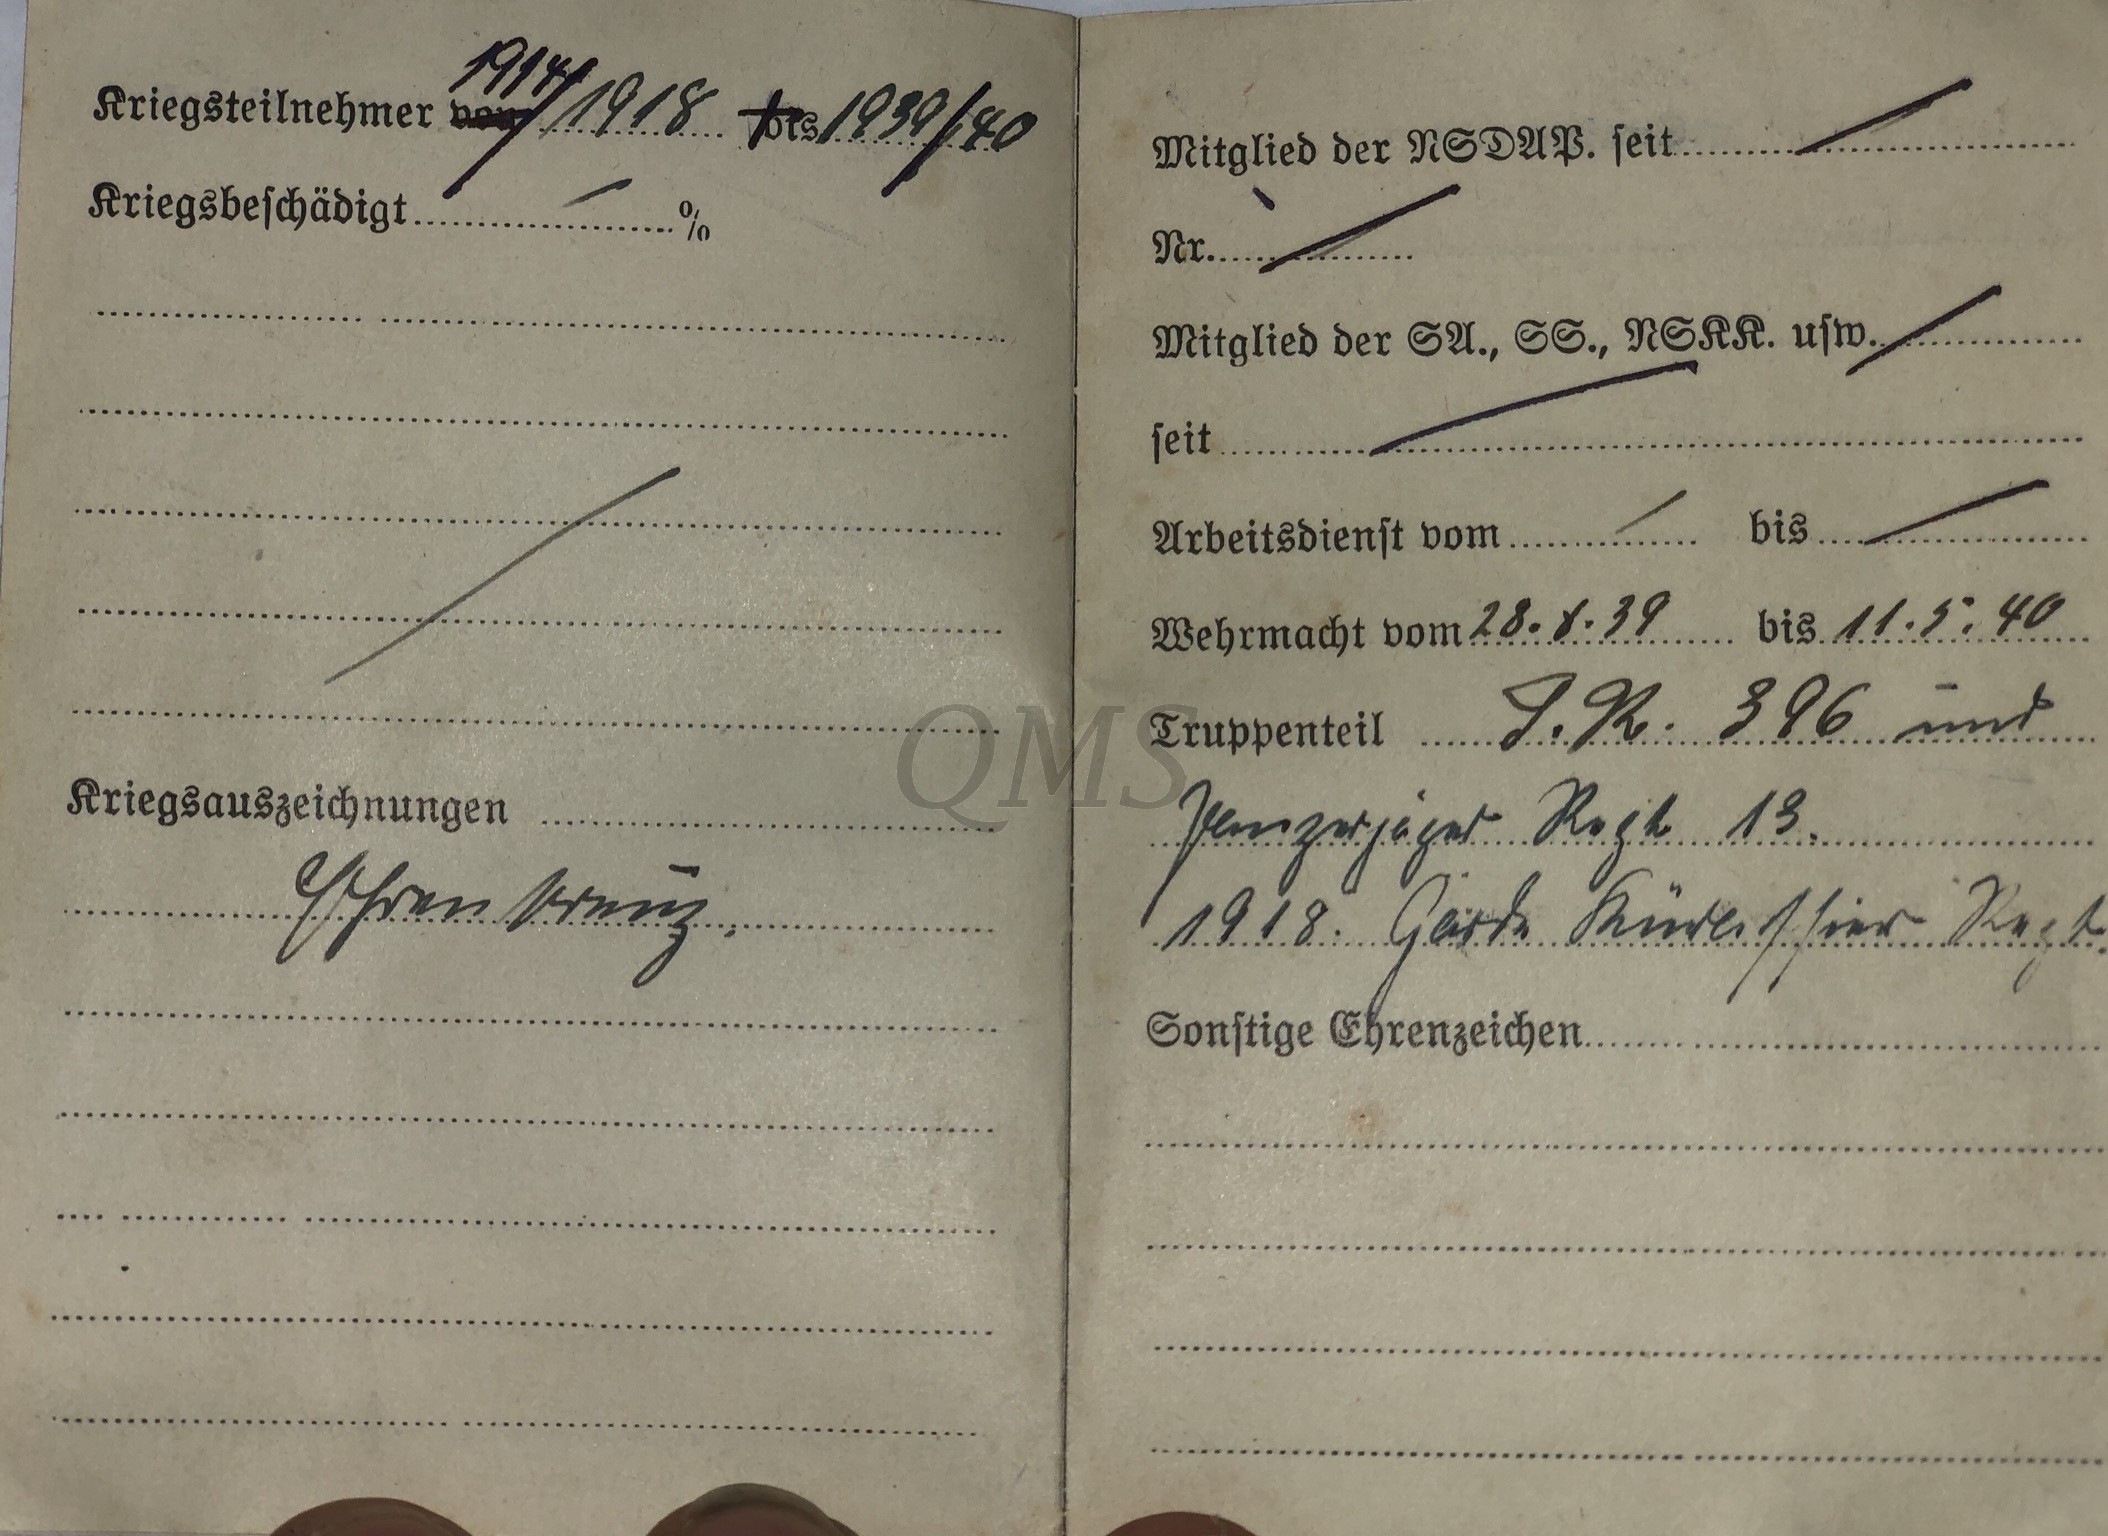 1914/
Kriegsteilnehmer von 1918 + bis 1939/40
Kriegsbeschädigt %
Kriegsauszeichnungen
Ehrenkreuz.
Mitglied der NSDAP. seit
Nr.
Mitglied der SA., SS., NSKK. usw.
seit
Arbeitsdienst vom bis
Wehrmacht vom 28.8.39 bis 11.5.40
Truppenteil I.R. 396 und
Panzerjäger Regt 13.
1918. Garde Kürassier Regt.
Sonstige Ehrenzeichen
QMS